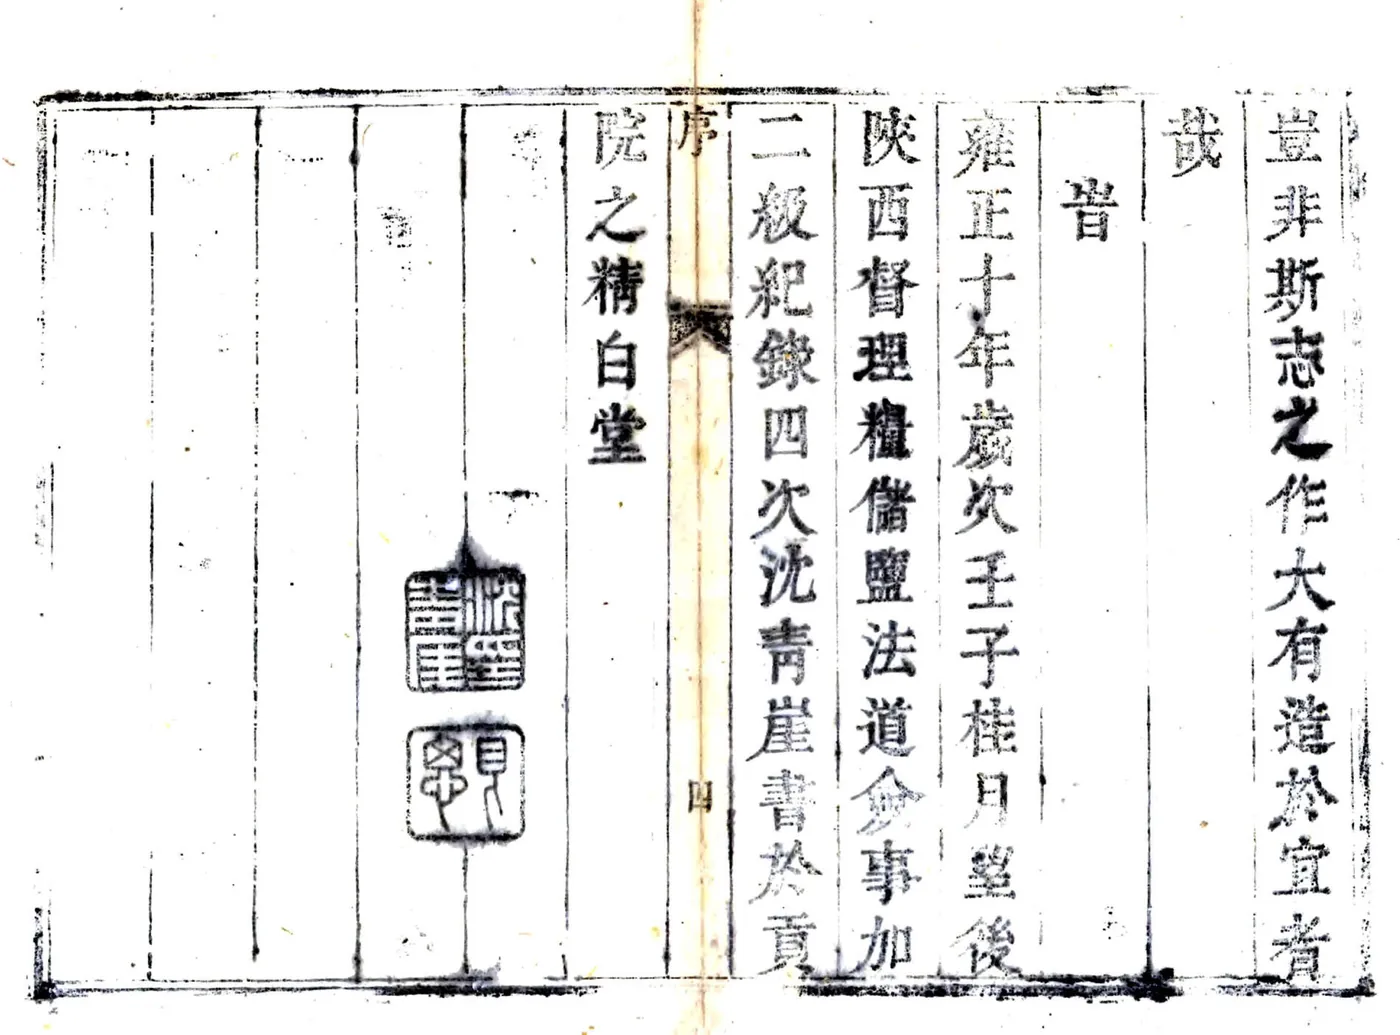 豈非斯志之作大有造於宜者
哉
旹
雍正十年歲次壬子桂月望後
陝西督理糧儲鹽法道僉事加
二級紀錄四次沈青崖書於貢
序
四
院之精白堂